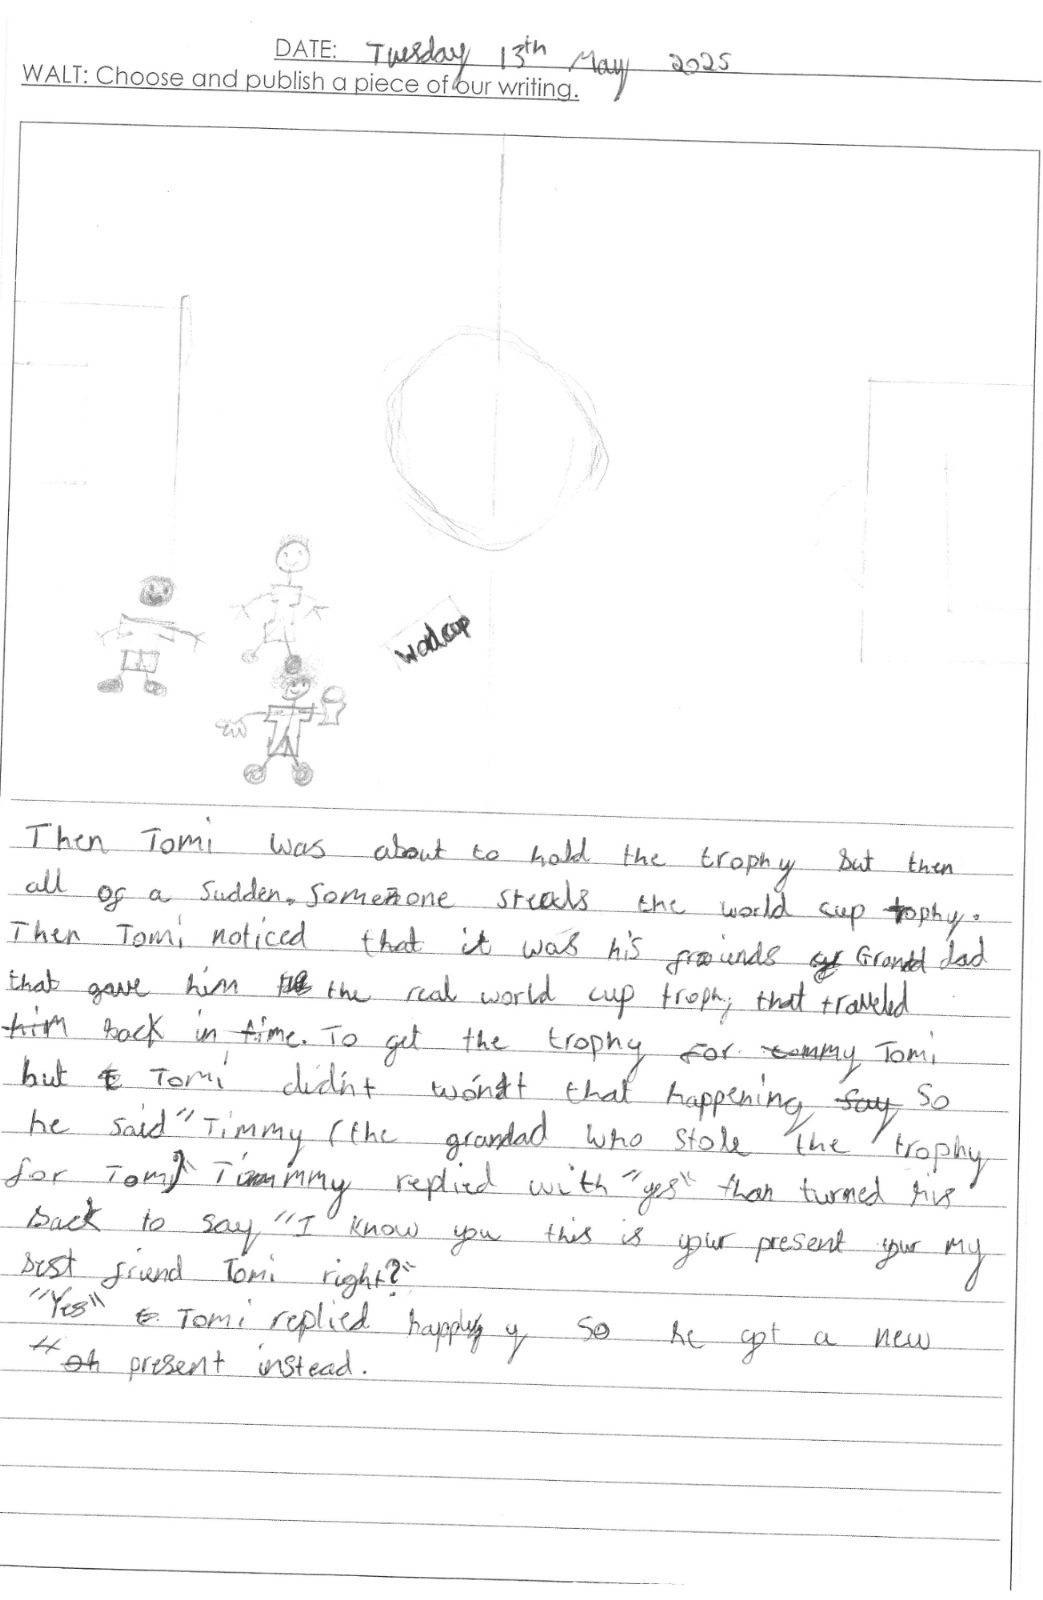 DATE: Tuesday 13th May 2025
WALT: Choose and publish a piece of our writing.
Then Tomi was about to hold the trophy but then
all of a sudden. Someone steals the world cup tophy.
Then Tomi noticed that it was his friends Grandad
that gave him the real world cup trophy that traveled
him back in time. To get the trophy for tommy Tomi
but Tomi didn't won't that happening say So
he said "Timmy (the grandad who stole the trophy
for Tomi)" Timmmy replied with "yes" than turned his
back to say "I know you this is your present your my
best friend Tomi right?"
"Yes" Tomi replied happy so he got a new
oh present instead.